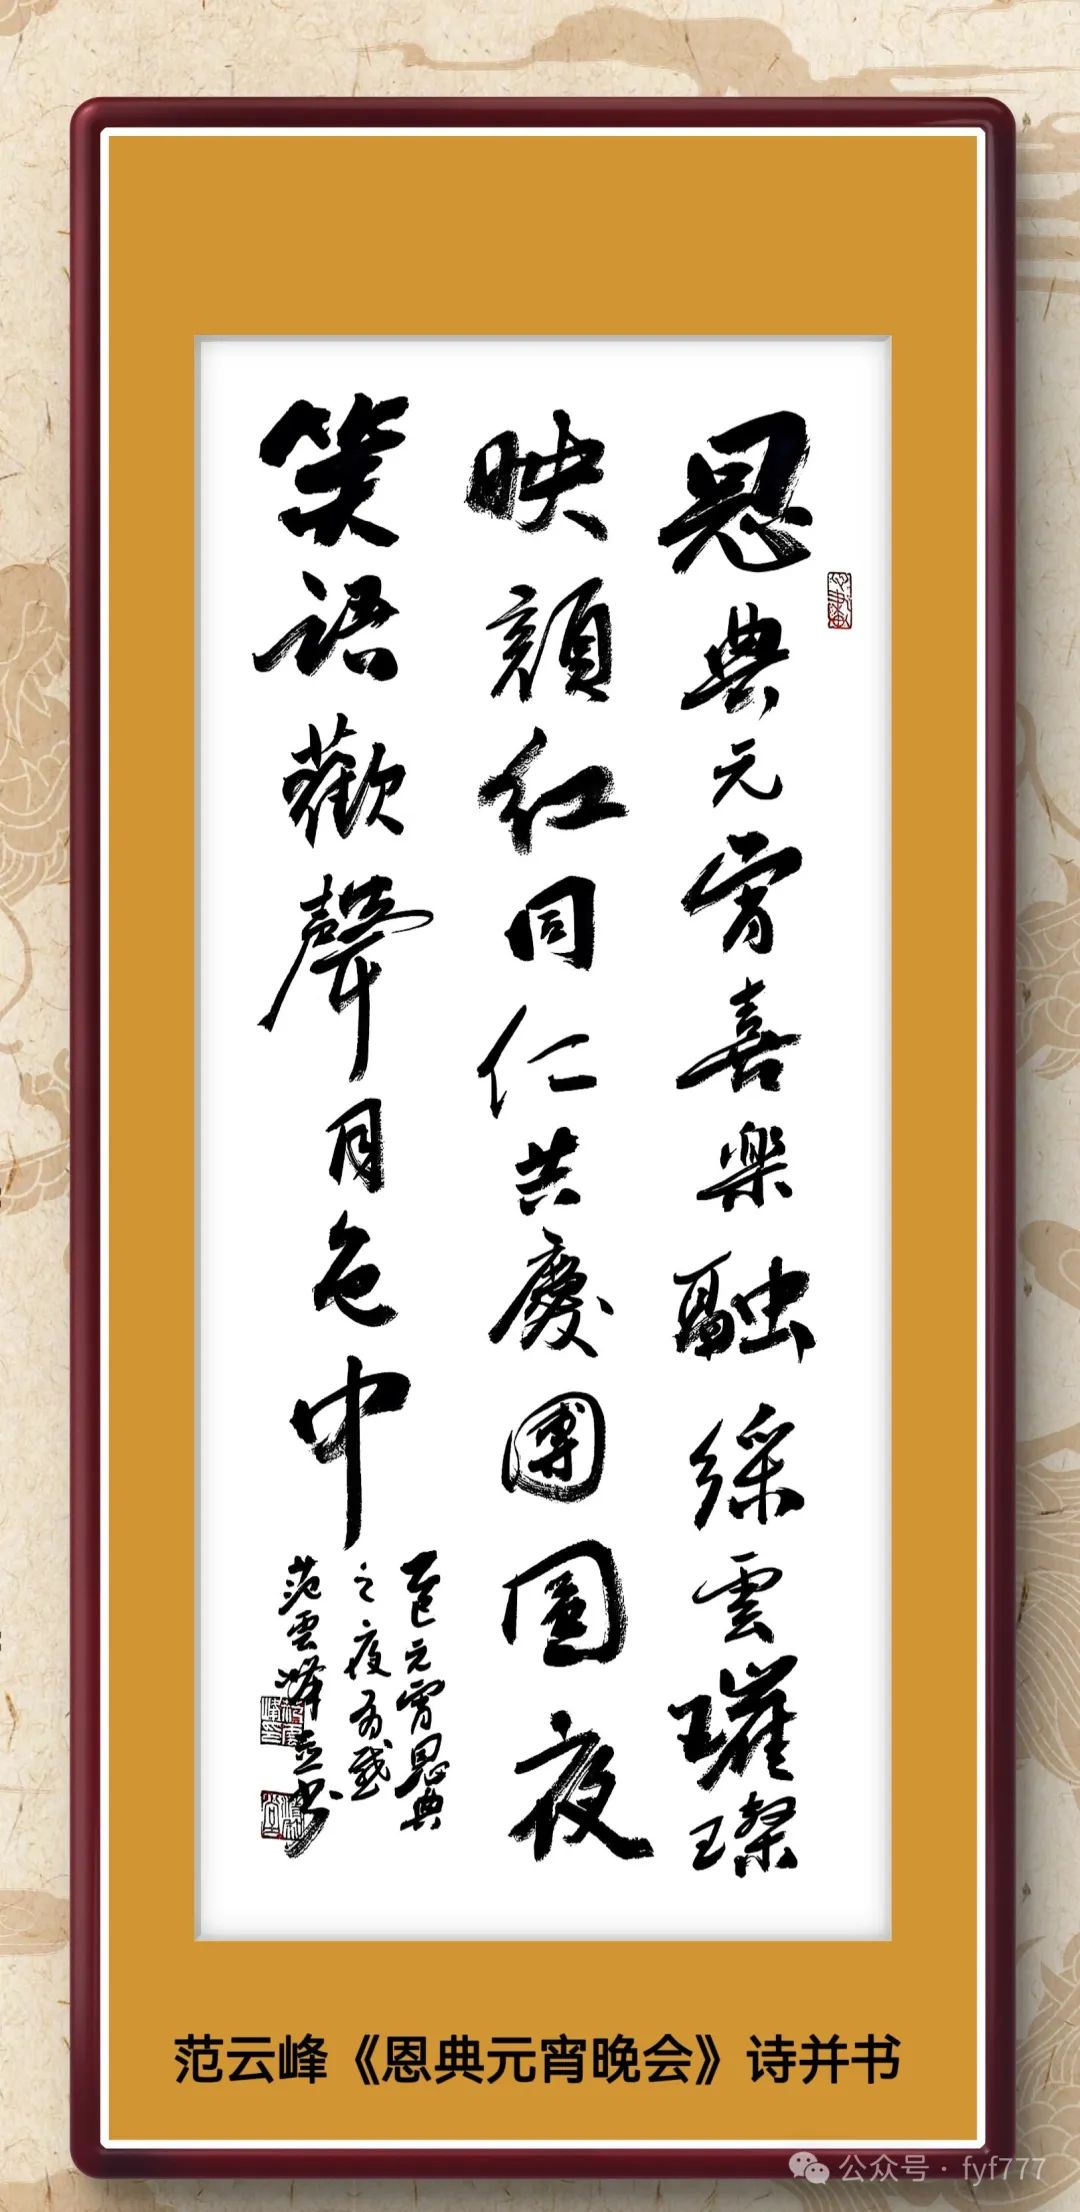 恩典元宵喜樂融綵雲璀璨
映顔紅同仁共慶團圓夜
笑語歡聲月色中
乙巳元宵恩典
之夜有感
范雲峰並書
范云峰《恩典元宵晚会》诗并书
公众号·fyf777